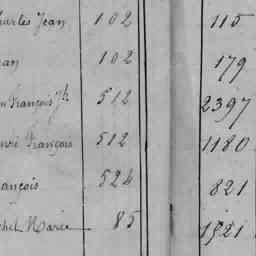 harles Jean 102 115
ean 102 179
n François Jh 512 2397
enri François 512 1180
ançois 524 821
chel Marie 85 1521